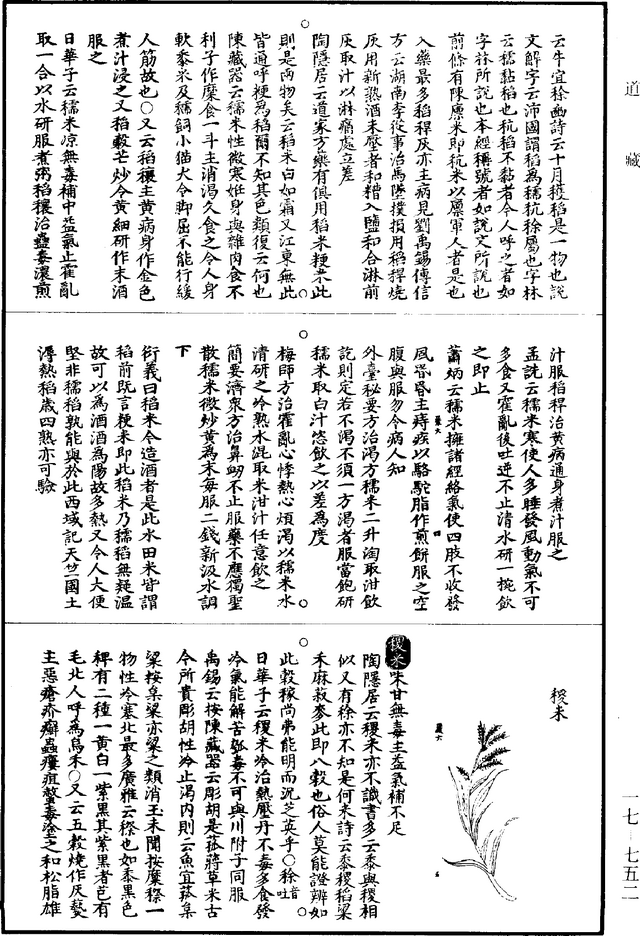 道藏
云牛宜稌豳詩云十月穫稻是一物也説
文解字云沛國謂稻爲稬秔稌屬也字林
云糯黏稻也秔稻不黏者今人呼之者如
字林所説也本經稱號者如説文所説也
前條有陳廩米即秔米以廩軍人者是也
入藥最多稻稈灰亦主病見劉禹錫傳信
方云湖南李從事治馬墜撲損用稻稈燒
灰用新熟酒未壓者和糟入鹽和合淋前
灰取汁以淋痛處立差
陶隱居云道家方藥有俱用稻米粳米此
則是兩物矣云稻米白如霜又江東無此
皆通呼粳爲稻爾不知其色類復云何也
陳藏器云糯米性微寒妊身與雜肉食不
利子作糜食一斗主消渴久食之令人身
軟黍米及糯飼小猫犬令脚屈不能行緩
人筋故也○又云稻穰主黃病身作金色
煮汁浸之又稻穀芒炒令黃細研作末酒
服之
日華子云糯米凉無毒補中益氣止霍亂
取一合以水研服煮粥稻穰治蠱毒濃煎
汁服稻稈治黃病通身煮汁服之
孟詵云糯米寒使人多睡發風動氣不可
多食又霍亂後吐逆不止清水研一椀飲
之即止
蕭炳云糯米擁諸經絡氣使四肢不收發
風昏昏主痔疾以駱駝脂作煎餅服之空
腹與服勿令病人知
外臺秘要方治渴方糯米二升淘取泔飲
訖則定若不渴不須一方渴者服當飽研
糯米取白汁恣飲之以差爲度
梅師方治霍亂心悸熱心煩渴以糯米水
清研之冷熱水混取米泔汁任意飲之
簡要濟衆方治鼻衂不止服藥不應獨聖
散糯米微炒黃爲末每服二錢新汲水調
下
衍義曰稻米今造酒者是此水田米皆謂
稻前既言粳米即此稻米乃糯稻無疑温
故可以爲酒酒爲陽故多熱又令人大便
堅非糯稻孰能與於此西域記天竺國土
溽熱稻歲四熟亦可驗
稷米
稷米味甘無毒主益氣補不足
陶隱居云稷米亦不識書多云黍與稷相
似又有稌亦不知是何米詩云黍稷稻粱
禾麻菽麥此即八穀也俗人莫能證辨如
此穀稼尚弗能明而況芝英乎○稌音吐
日華子云稷米冷治熱壓丹不毒多食發
冷氣能解苦瓠毒不可與川附子同服
禹錫云按陳藏器云彫胡是菰蔣草米古
今所貴彫胡性冷止渴内則云魚宜菰集
粱按皐粱亦粱之類消玉未聞按糜穄一
物性冷塞北最多廣雅云穄也如黍黑色
稗有二種一黃白一紫黑其紫黑者芑有
毛北人呼爲烏禾○又云五穀燒作灰藝
主惡瘡疥癬蟲瘻疽螫毒塗之和松脂雄
一七—七五二